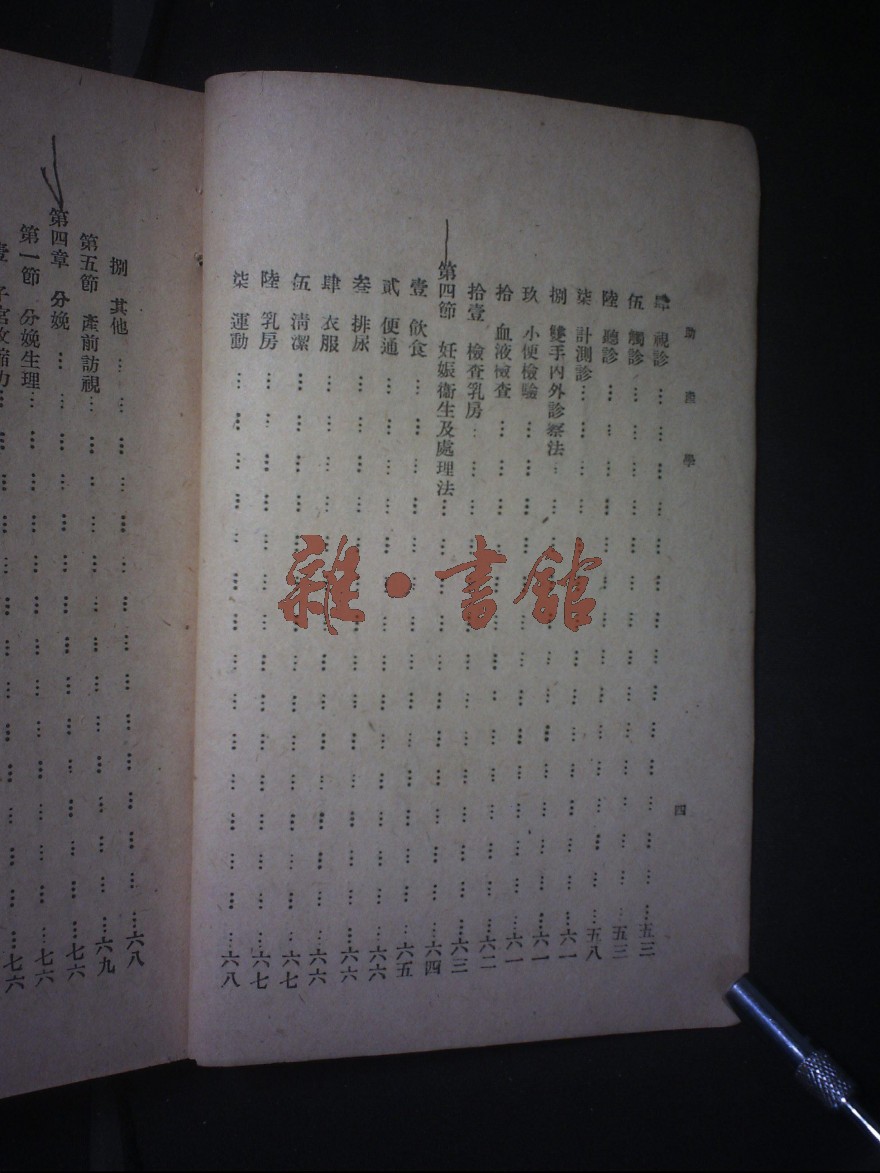 助產學
四
肆 視診 … … … … … … … … …五三
伍 觸診 … … … … … … … … …五三
陸 聽診 … … … … … … … … …五三
柒 計測診 … … … … … … … … …五八
捌 雙手內外診察法 … … … … … … …六一
玖 小便檢驗 … … … … … … … …六一
拾 血液檢查 … … … … … … … …六一
拾壹 檢查乳房 … … … … … … … …六二
第四節 妊娠衛生及處理法 … … … … … … …六三
壹 飲食 … … … … … … … … …六四
貳 便通 … … … … … … … … …六五
叁 排尿 … … … … … … … … …六六
肆 衣服 … … … … … … … … …六六
伍 清潔 … … … … … … … … …六六
陸 乳房 … … … … … … … … …六七
柒 運動 … … … … … … … … …六七
六八
捌 其他 … … … … … … … … …六八
第五節 產前訪視 … … … … … … … …六九
第四章 分娩 … … … … … … … … …七六
第一節 分娩生理 … … … … … … … …七六
壹 子宮收縮力 … … … … … … … …七六
雜·書館